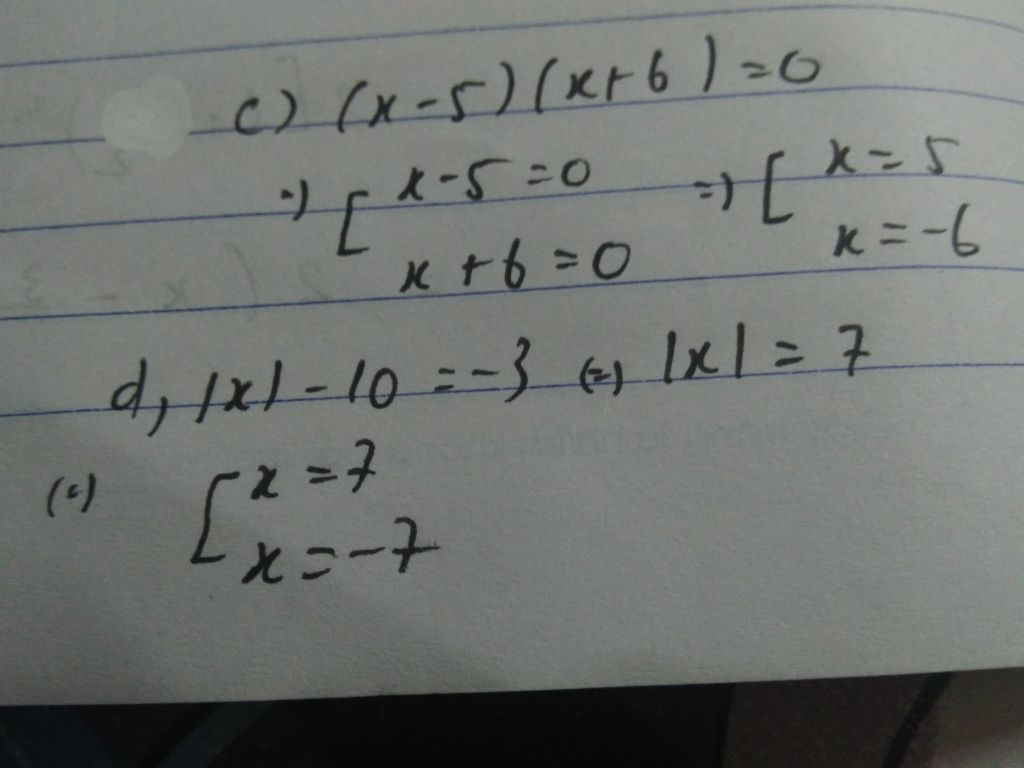 c) (x-5)(x+6)=0
=) [ x-5=0 =) [ x=5
x+6=0 x=-6
d, |x|-10=-3 (=) |x|=7
(=) [ x=7
x=-7